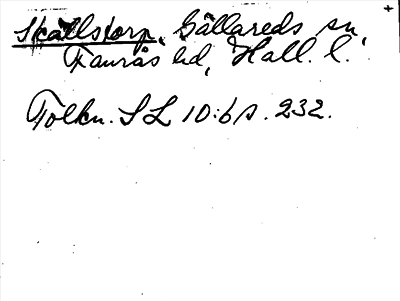 Skällstorp, Gällareds sn,
Faurås hd, Hall. l.
Tolkn. SL 10:6 s. 232.